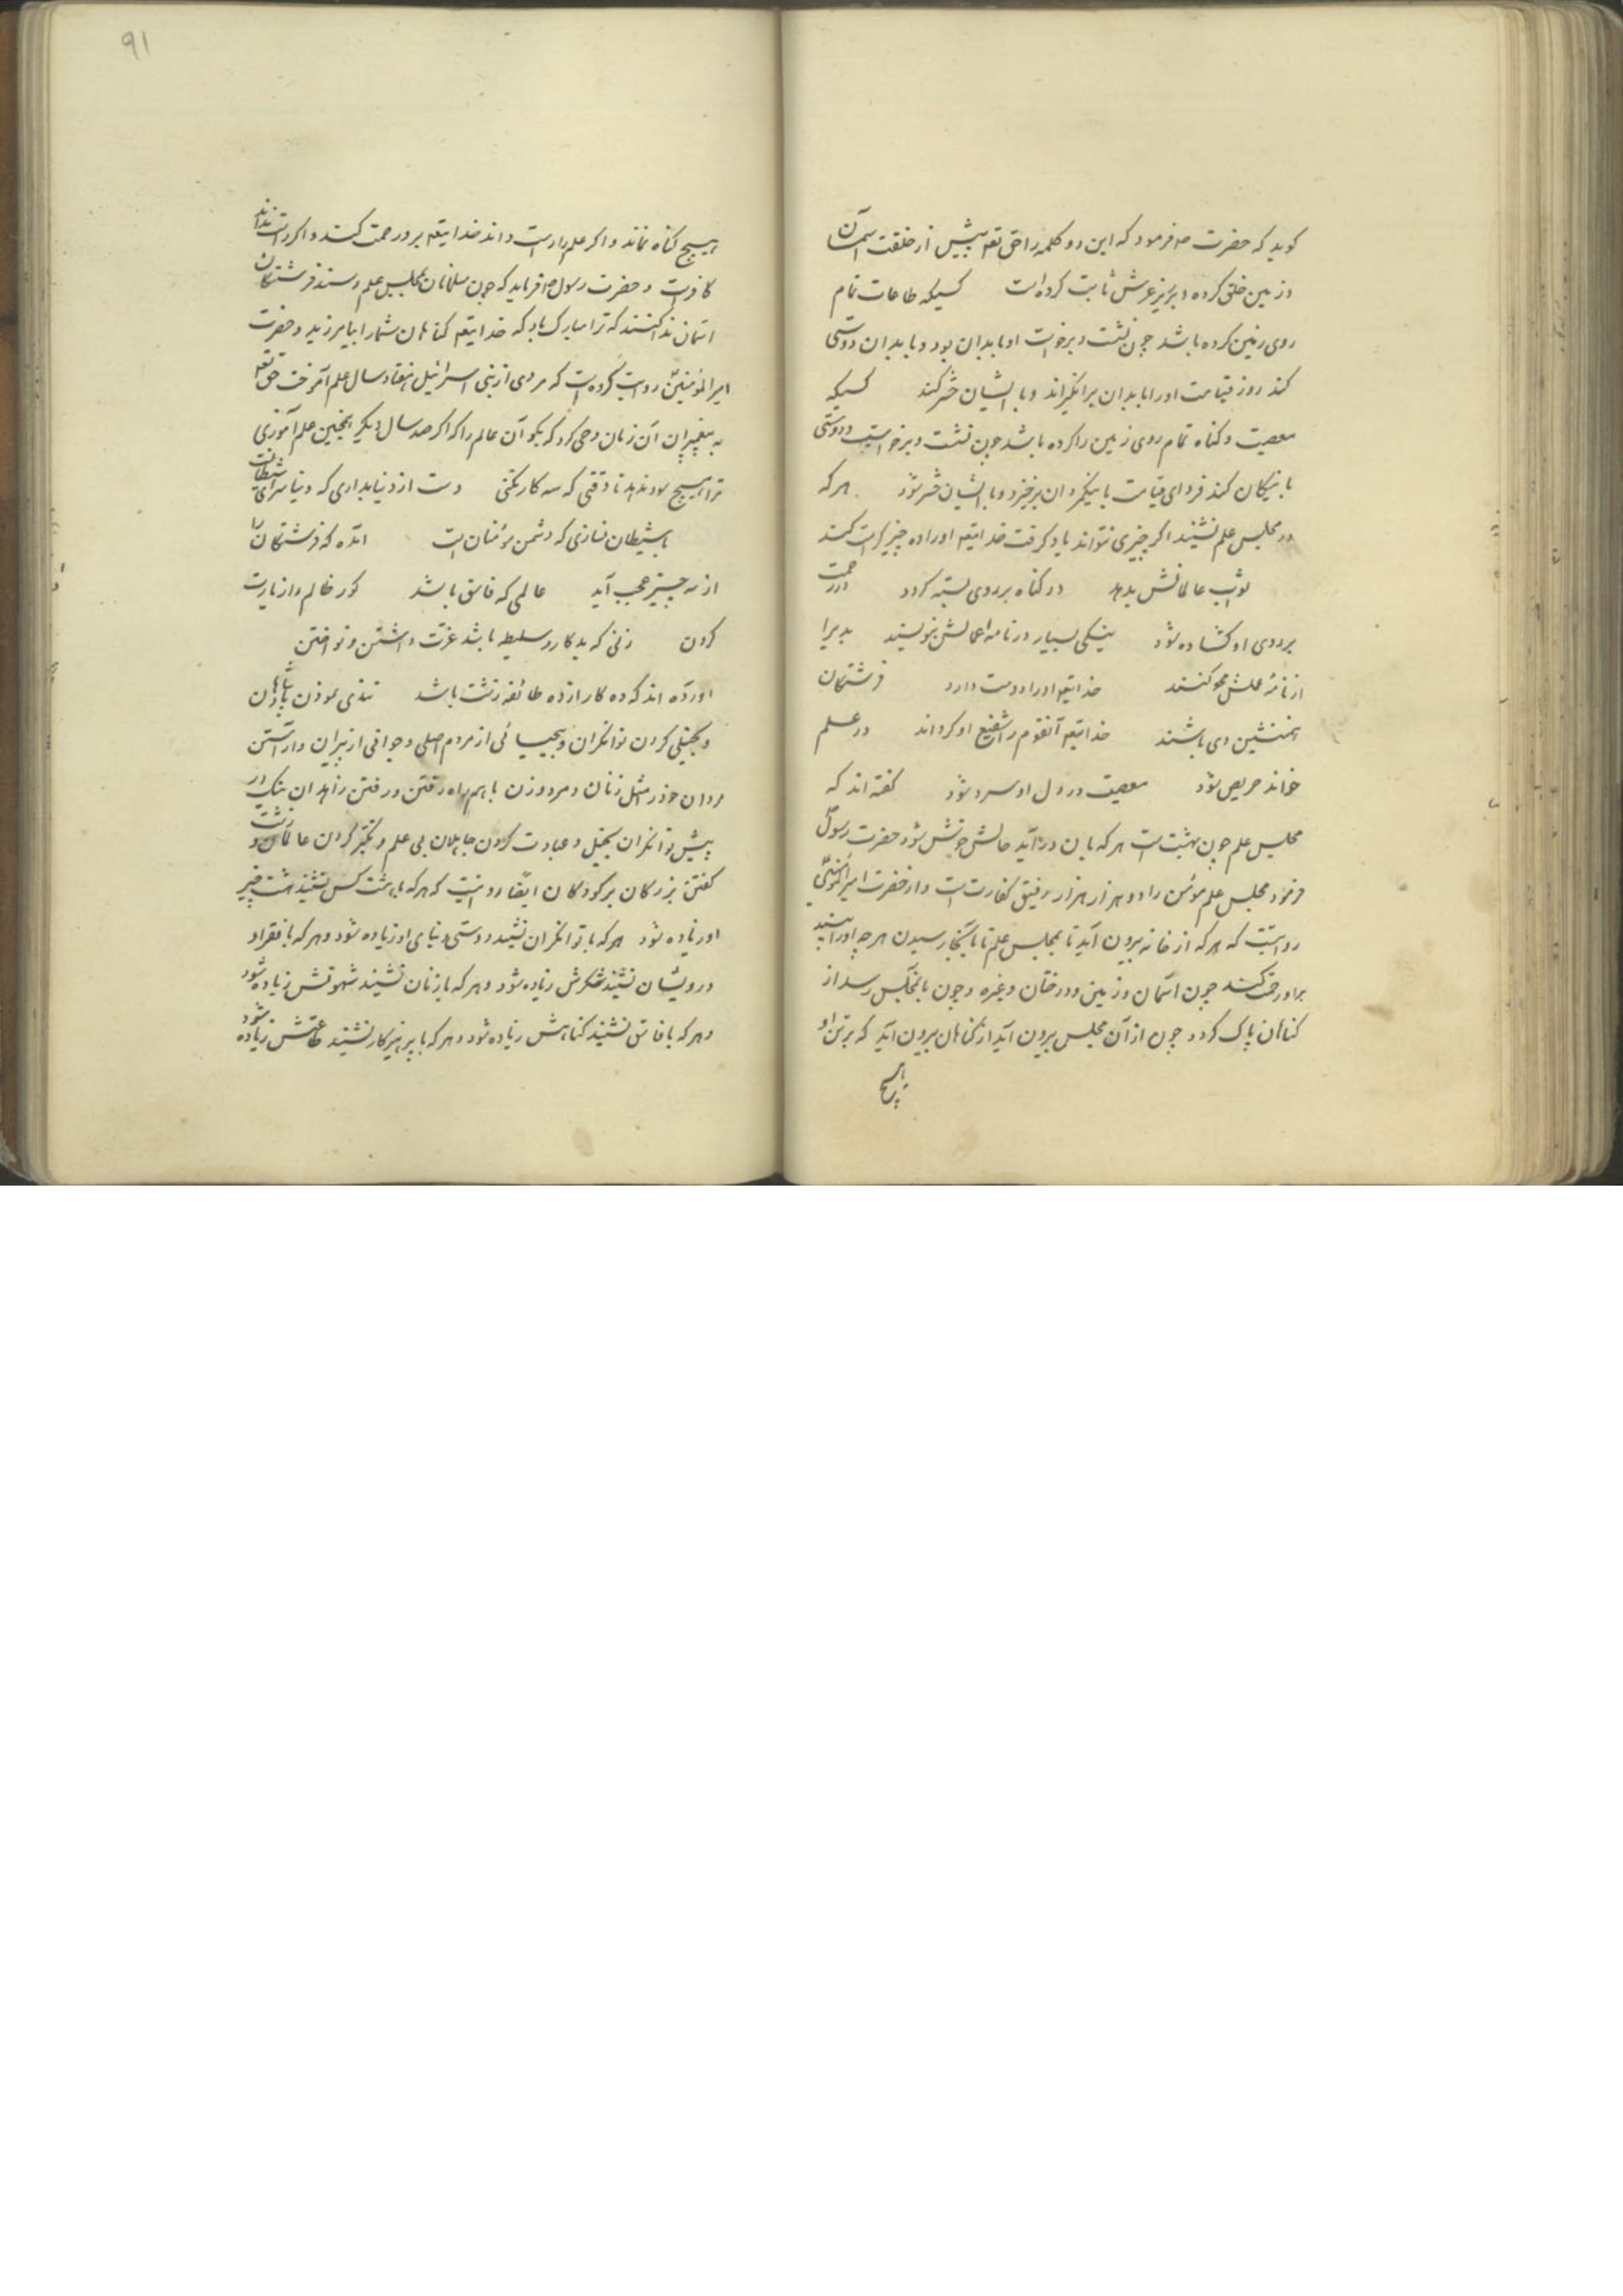 کوید که حضرت ص فرمود که این دو کلمه را حق تعه پیش از خلقت اسمان
و زمین خلق کرده و بر زیر عرش ثابت کرده است کسیکه طاعات تمام
روی زمین کرده باشد چون نشست و برخواست او با بدان بود و با بدان دوستی
کند روز قیامت او را با بدان برانکیزاند و با ایشان حشر کند کسیکه
معصیت و کناه تمام روی زمین را کرده باشد چون نشست و برخواست و دوستی
با نیکان کند فردای قیامت با نیکمردان برخیزد و با ایشان حشر شود هر که
در مجلس علم نشیند اکر چیزی نتواند یاد کرفت خدایتعه او را ده چیز کرامت کند
ثواب عالمانش بدهد در کناه بر روی بسته کردد در رحمت
بر روی او کشاده شود نیکی بسیار در نامه اعمالش بنویسند بدیرا
از نامهٔ عملش محو کنند خدایتعه او را دوست دارد فرشتکان
همنشین وی باشند خدایتعه آنقوم را شفیع او کرداند در علم
خواند حریص شود معصیت در دل او سرد شود کفته اند که
مجلس علم چون بهشت است هر که بان در آید حالش خوش شود حضرت رسول ص
فرمود مجلس علم مؤمن را دو هزار هزار رفیق کفارت است و از حضرت امیر المؤمنین
روایتست که هر که از خانه بیرون آید تا بمجلس علم تا بآنجا رسیدن هر چه او را بیند
بر او رحمت کند چون اسمان و زمین و درختان و غیره و چون بانمجلس رسد از
کناهان پاک کردد چون از آن مجلس بیرون آید از کناهان بیرون آید که بر تن او
هیچ
91
هیچ کناه نماند و اکر علم را راست داند خدایتعه بر و رحمت کند و اکر راست نداند
کافرست و حضرت رسول ص فرماید که چون مسلمانان بمجلس علم رسند فرشتکان
اسمان ندا کنند که ترا مبارک باد که خدایتعه کناهان شما را بیامرزید و حضرت
امیر المؤمنین روایت کرده است که مردی از بنی اسرائیل هفتاد سال علم آموخت حق تعه
به پیغمبران آن زمان وحی کرد که بکو آن عالم را که اکر صد سال دیکر اینچنین علم آموزی
ترا هیچ سود ندهد تا وقتی که سه کار نکنی دست از دنیا بداری که دنیا سرای شیطانست
با شیطان نسازی که دشمن مؤمنان است آمده که فرشتکان را
از سه چیز عجب آید عالمی که فاسق باشد کور ظالم را زیارت
کردن زنی که بدکار و سلیطه باشد عزت داشتن و نواختن
آورده اند که ده کار از ده طائفه زشت باشد تندی نمودن پادشاهان
و بخیلی کردن توانکران و بیحیائی از مردم اصلی و جوانی از پیران و آراستن
مردان خود را مثل زنان و مرد و زن با هم راه رفتن و رفتن زاهدان بنیک در
پیش توانکران بخیل و عبادت کردن جاهلان بی علم و تکبر کردن عالمان و زشت
کفتن بزرکان بر کودکان ایضا روایتست که هر که با هشت کس نشیند هشت چیز
او زیاده شود هر که با توانکران نشیند دوستی دنیای او زیاده شود و هر که با فقرا و
درویشان نشیند شکرش زیاده شود و هر که با زنان نشیند شهوتش زیاده شود
و هر که با فاسق نشیند کناهش زیاده شود و هر که با پرهیزکار نشیند طاعتش زیاده شود